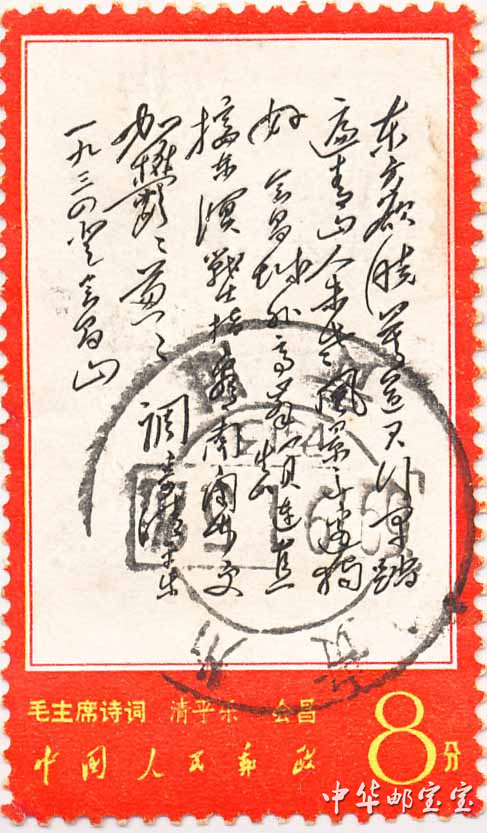 东方欲晓莫道君行早踏
遍青山人未老风景这边独
好 会昌城外高峰颠连直
接东溟战士指看南粤更
加郁々葱々
调寄清平乐
一九三四登会昌山
毛主席诗词 清平乐 会昌
中国人民邮政
8分
中华邮宝宝